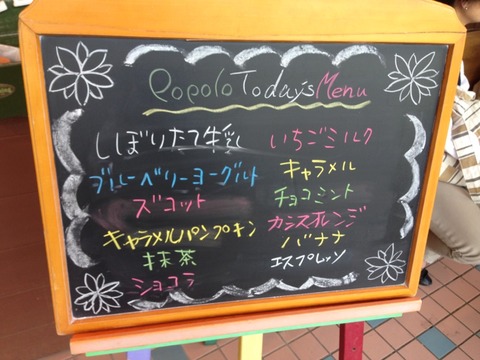 Popolo Today's Menu
しぼりたて牛乳
ブルーベリーヨーグルト
ズコット
キャラメルパンプキン
抹茶
ショコラ
いちごミルク
キャラメル
チョコミント
カシスオレンジ
バナナ
エスプレッソ